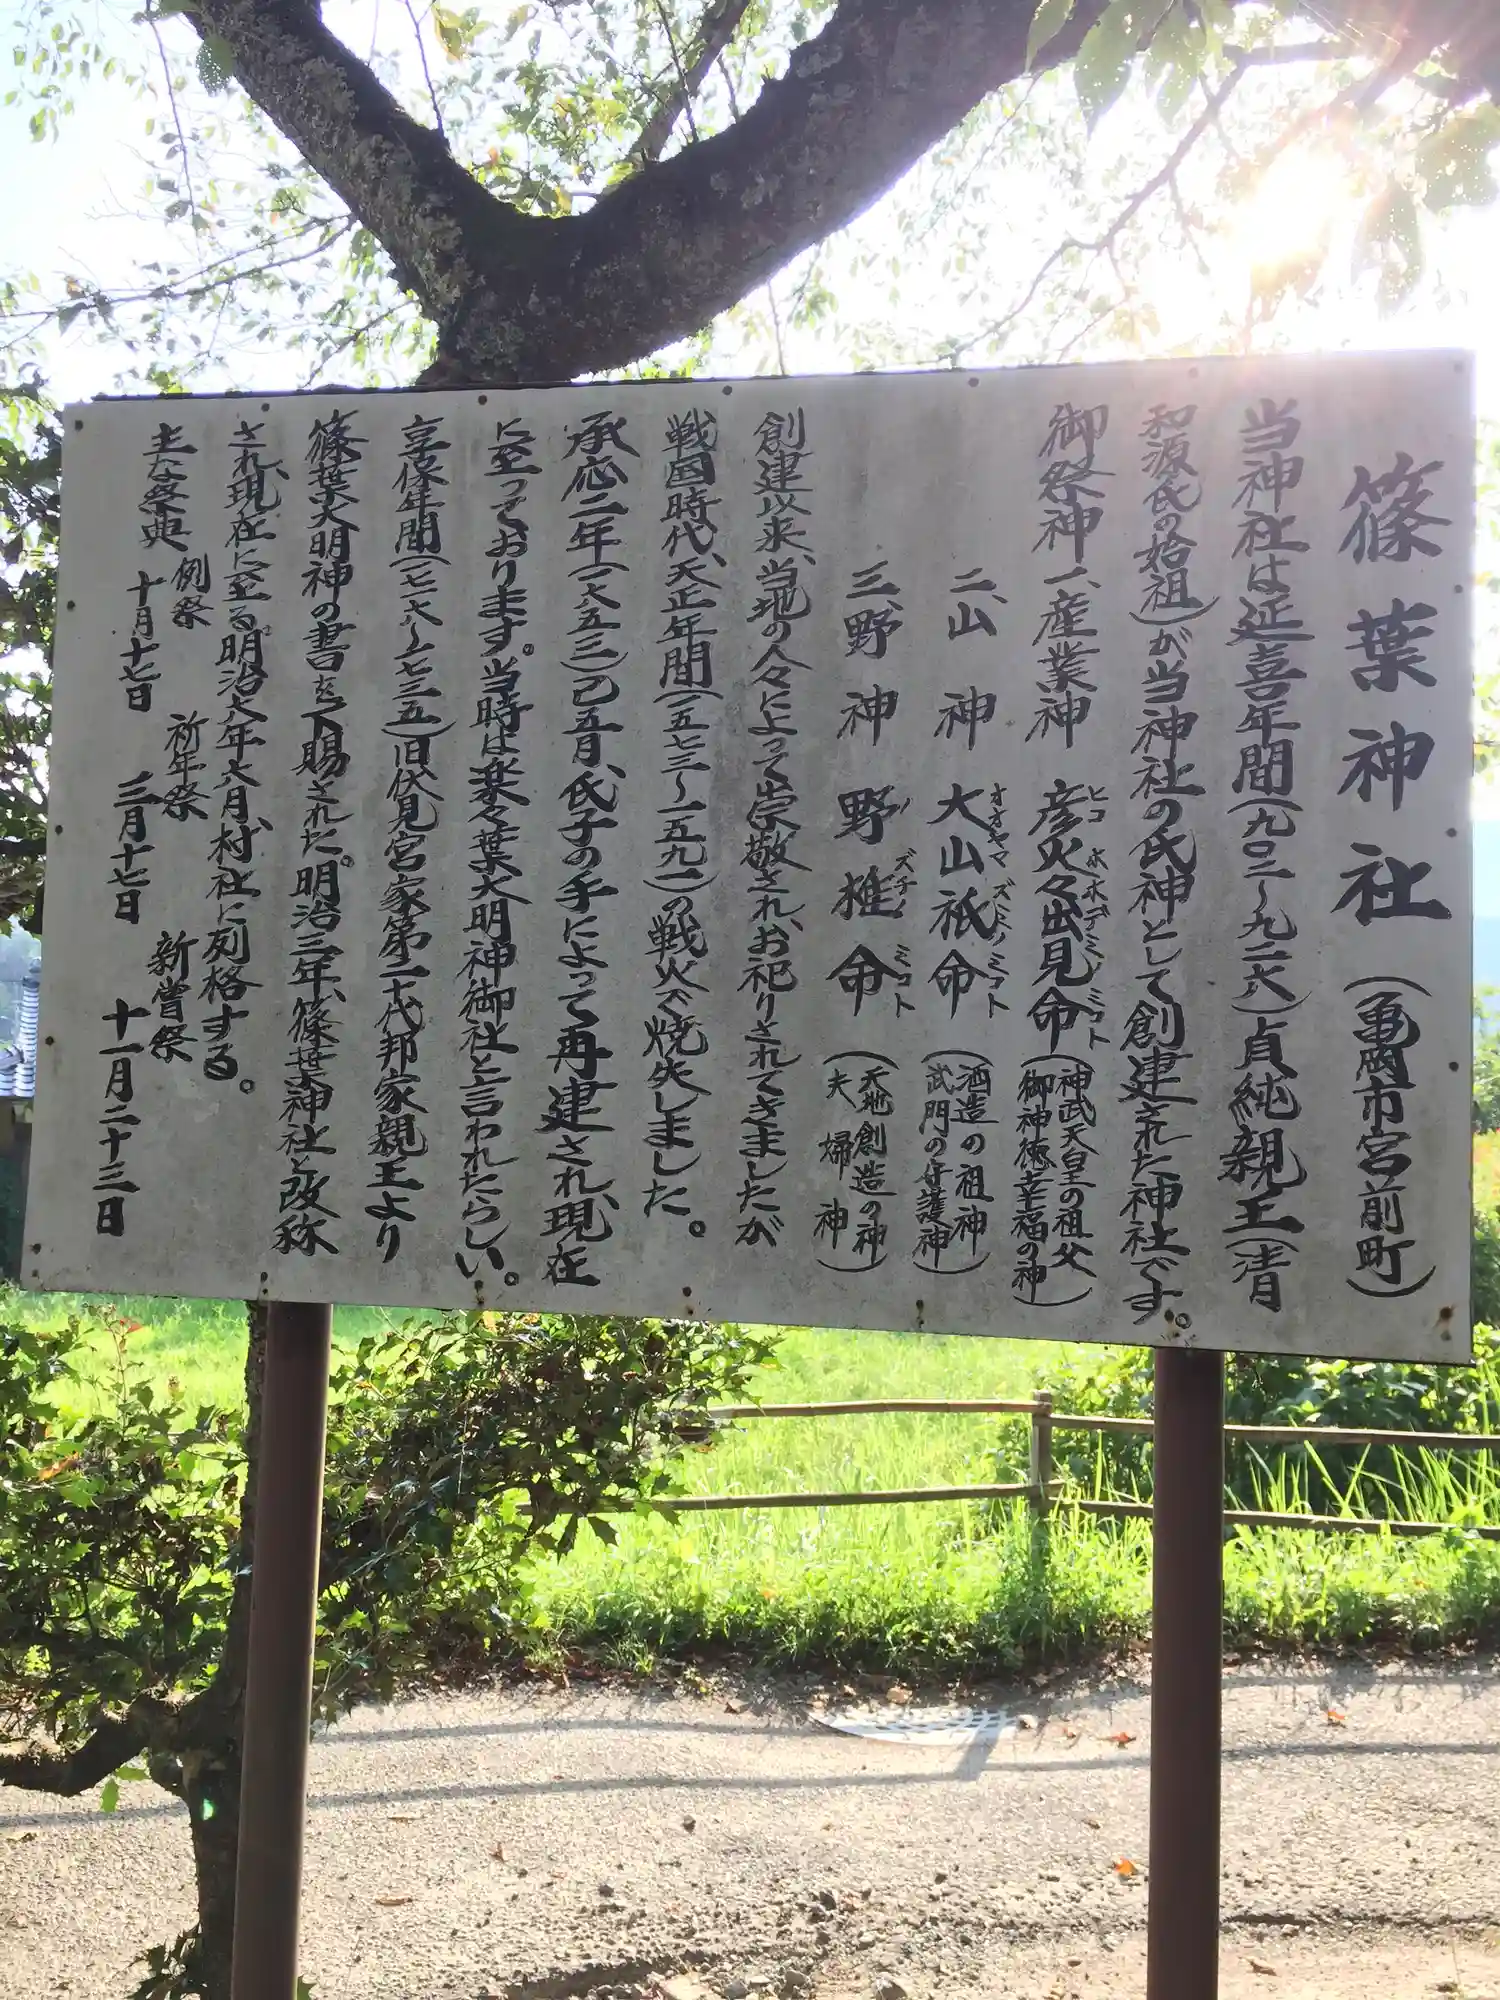 篠葉神社(亀岡市宮前町)
当神社は延喜年間(九〇三〜九二六)貞純親王(清
和源氏の始祖)が当神社の氏神として創建された神社です。
御祭神 一、産業神 彦火々出見命(神武天皇の祖父 御神徳幸福の神)
ヒコホホデミノミコト
二、山神 大山祇命(酒造の祖神 武門の守護神)
オオヤマズミノミコト
三、野神 野椎命(天地創造の神 夫婦神)
ノズチノミコト
創建以来、当地の人々によって崇敬され、お祀りされてきましたが
戦国時代、天正年間(一五七三〜一五九一)の戦火で焼失しました。
承応二年(一六五三)己五月、氏子の手によって再建され、現在
に至っております。当時は楽々葉大明神御社と言われたらしい。
享保年間(一七一六〜一七三五)旧伏見宮家第二十代邦家親王より
篠葉大明神の書を下賜された。明治三年、篠葉神社と改称
され、現在に至る。明治六年六月、村社に列格する。
主な祭典 例祭 十月十七日 祈年祭 三月十七日 新嘗祭 十一月二十三日